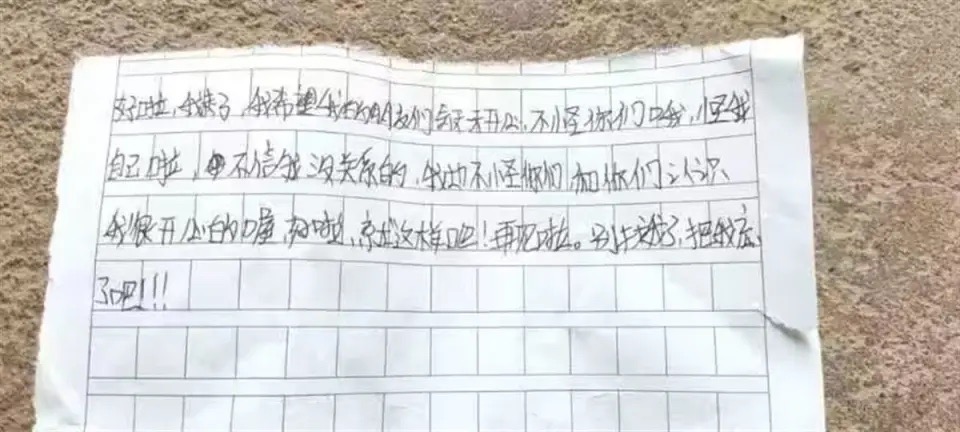 好啦，我走了，我希望我的朋友们每天开心，不怪你们哦，怪我
自己啦，不信我没关系的，我也不怪你们，和你们认识
我很开心的喔，好啦，就这样吧！再见啦。别找我了，把我忘
了吧!!!